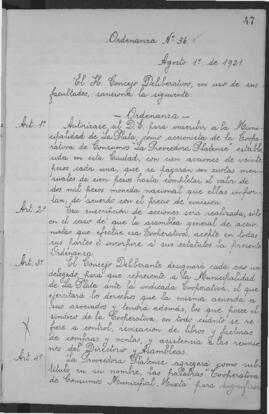 47
Ordenanza Nº 36
Agosto 1º de 1921
El H. Concejo Deliberativo, en uso de sus
facultades, sanciona la siguiente:
— Ordenanza —
Art. 1º Autorízase al D.E. para suscribir a la Muni-
cipalidad de La Plata, como accionista de la Coope-
rativa de Consumos "La Proveedora Platense" estable-
cida en esta Ciudad, con cien acciones de veinte
pesos cada una, que se pagarán con cuotas men-
suales de cien pesos hasta completar el valor de
dos mil pesos moneda nacional que ellas impor-
tan, de acuerdo con el precio de emisión.
Art. 2º Esa suscrición de acciones será realizada, sólo
en el caso de que la asamblea general de accio-
nistas que efectúe esa Cooperativa, acepte en todas
sus partes é incorpore á sus estatutos la presente
Ordenanza.
Art. 3º El Concejo Deliberante designará cada año un
delegado, para que represente a la Municipalidad
de La Plata ante la indicada Cooperativa, el que
ejercitará los derechos que la misma acuerda a
sus asociados y tendrá además, los que fuere el
síndico de la Cooperativa, en todo cuánto se re-
fiere a control, revisación de libros y facturas
de compras y ventas, y asistencia a las reunio-
nes del Directorio y Asambleas.
Art. 4º La Proveedora Platense agregará como sub-
título en su nombre, las palabras "Cooperativa
de Consumos Municipal Mixta" para significar